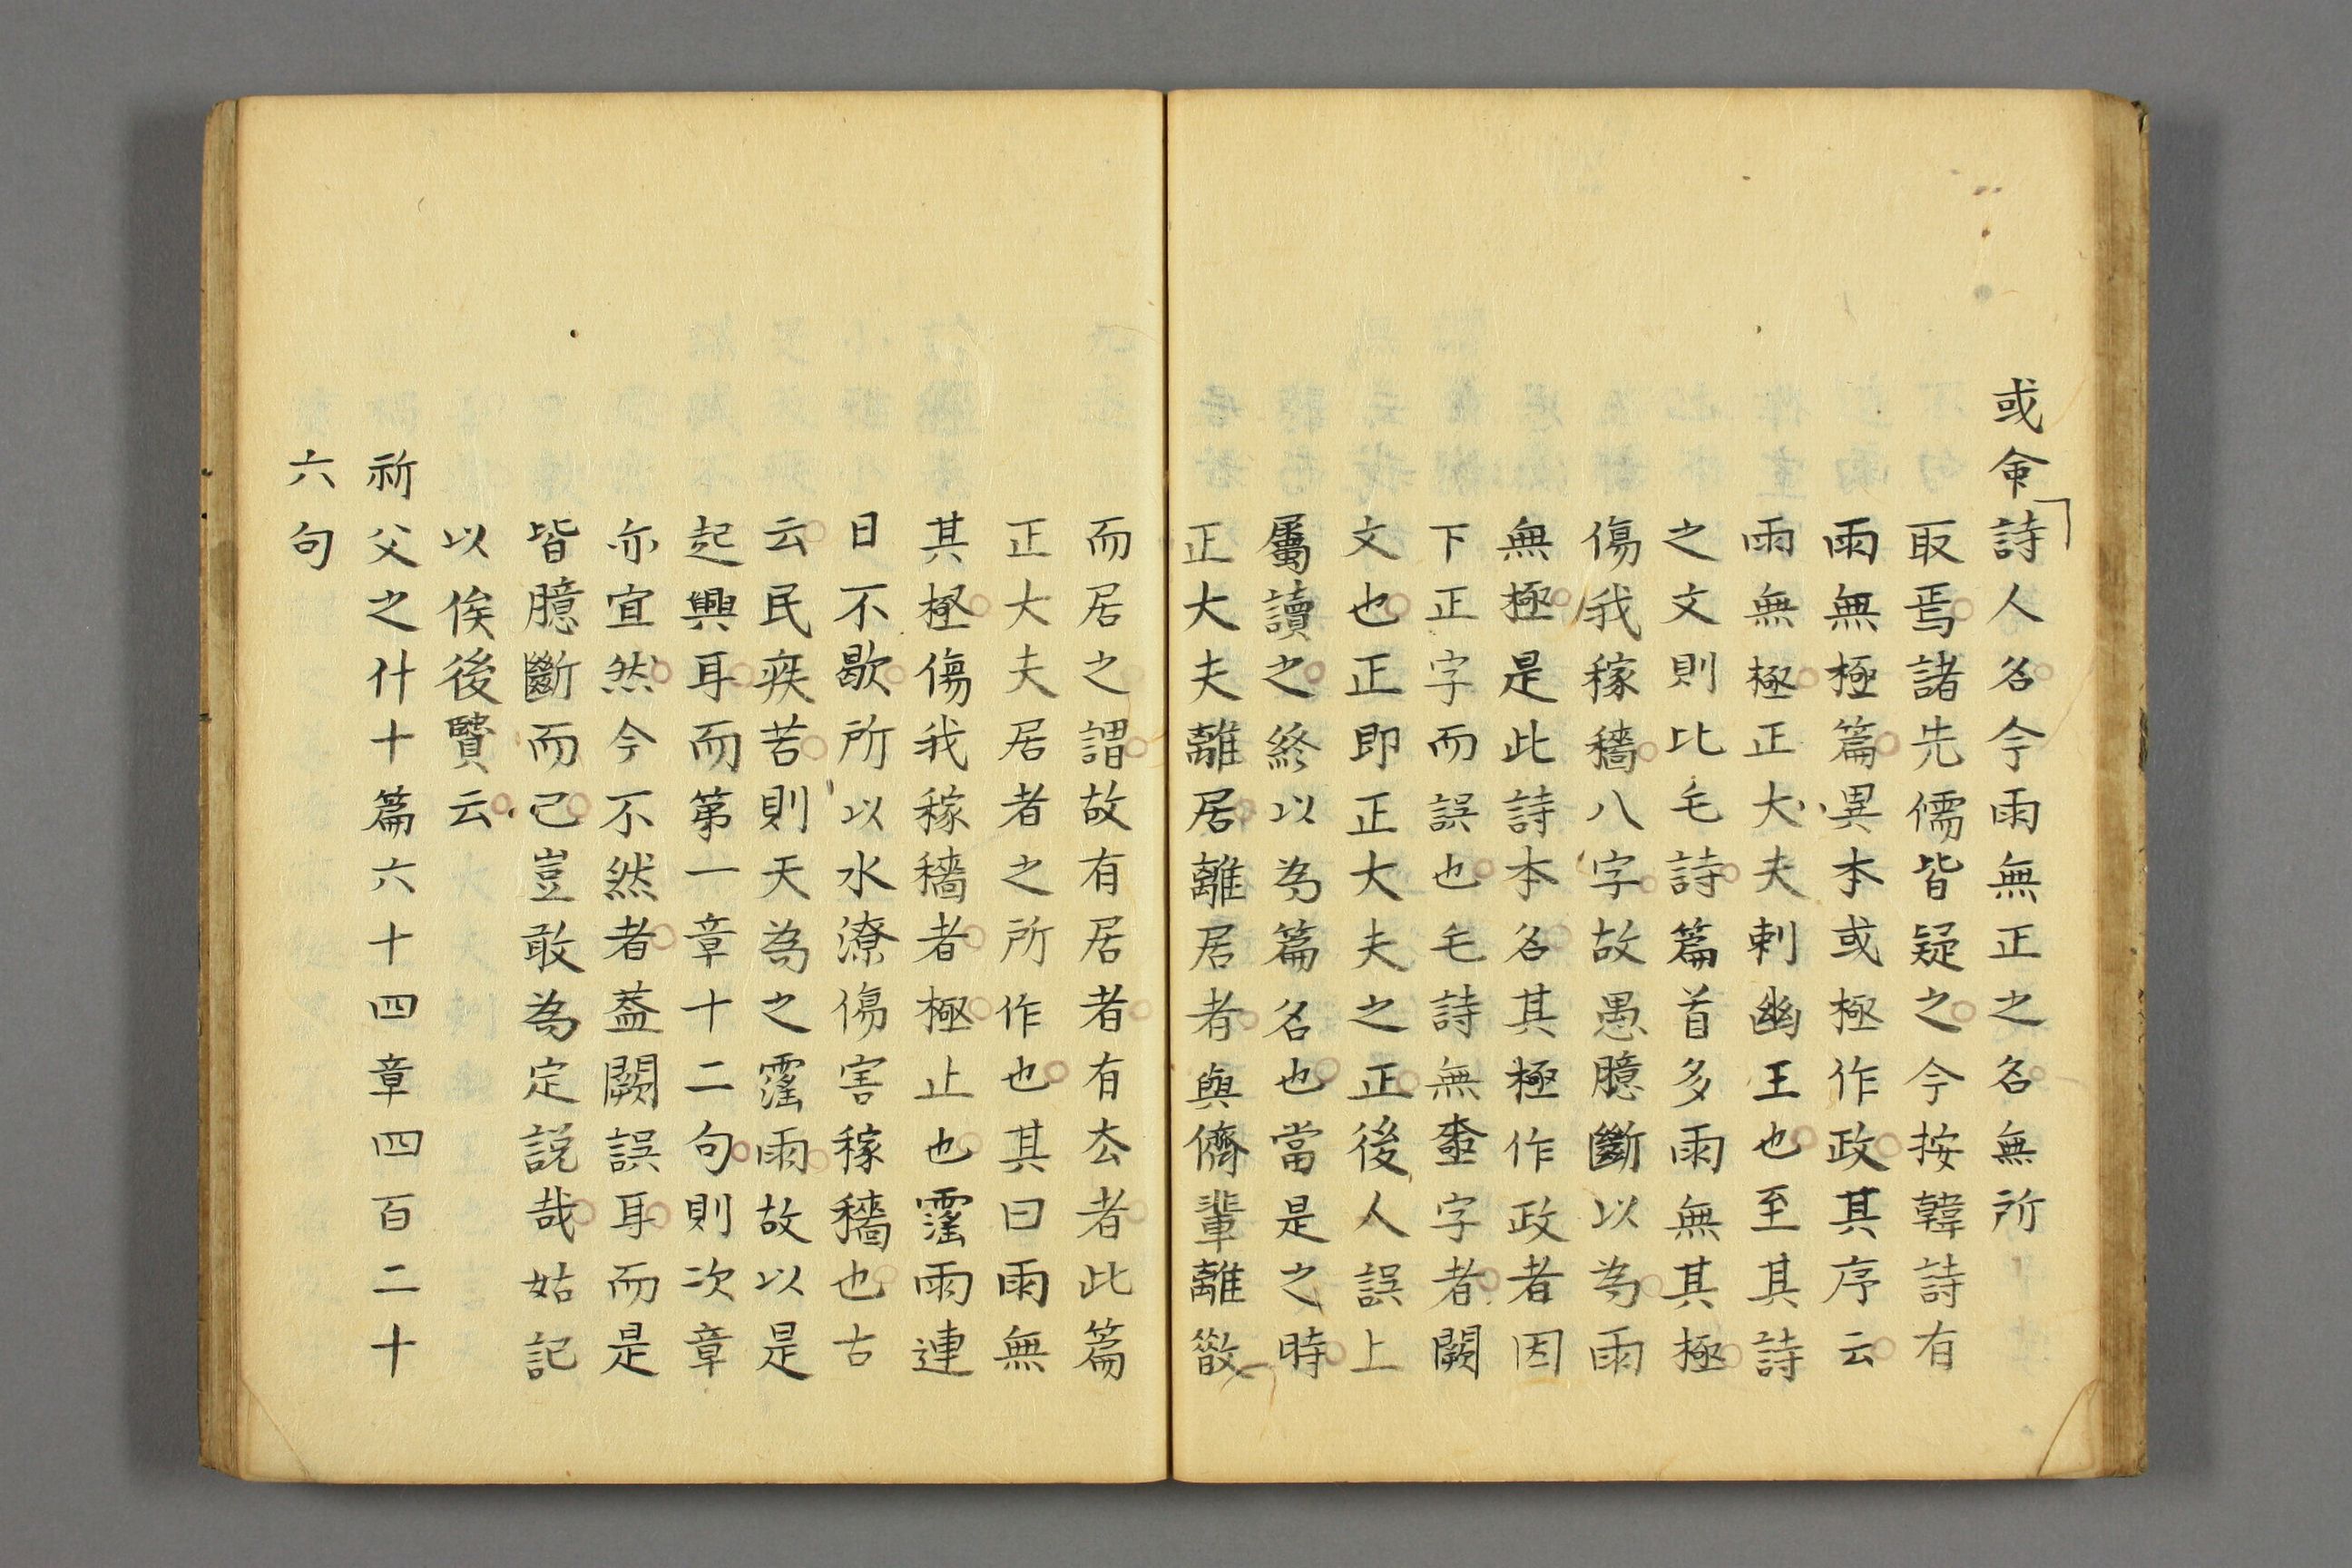 或命詩人名今雨無正之名無所
取焉諸先儒皆疑之今按韓詩有
雨無極篇異本或極作政其序云
雨無極正大夫刺幽王也至其詩
之文則比毛詩篇首多雨無其極
傷我稼穡八字故愚臆斷以為雨
無極是此詩本名其極作政者因
下正字而誤也毛詩無坴字者闕
文也正即正大夫之正後人誤上
屬讀之終以為篇名也當是之時
正大夫離居離居者與儕輩離散
而居之謂故有居者有厺者此篇
正大夫居者之所作也其曰雨無
其極傷我稼穡者極止也霪雨連
日不歇所以水潦傷害稼穡也古
云民疾苦則天為之霪雨故以是
起興耳而第一章十二句則次章
亦宜然今不然者葢闕誤耳而是
皆臆斷而已豈敢為定説哉姑記
以俟後賢云
祈父之什十篇六十四章四百二十
六句